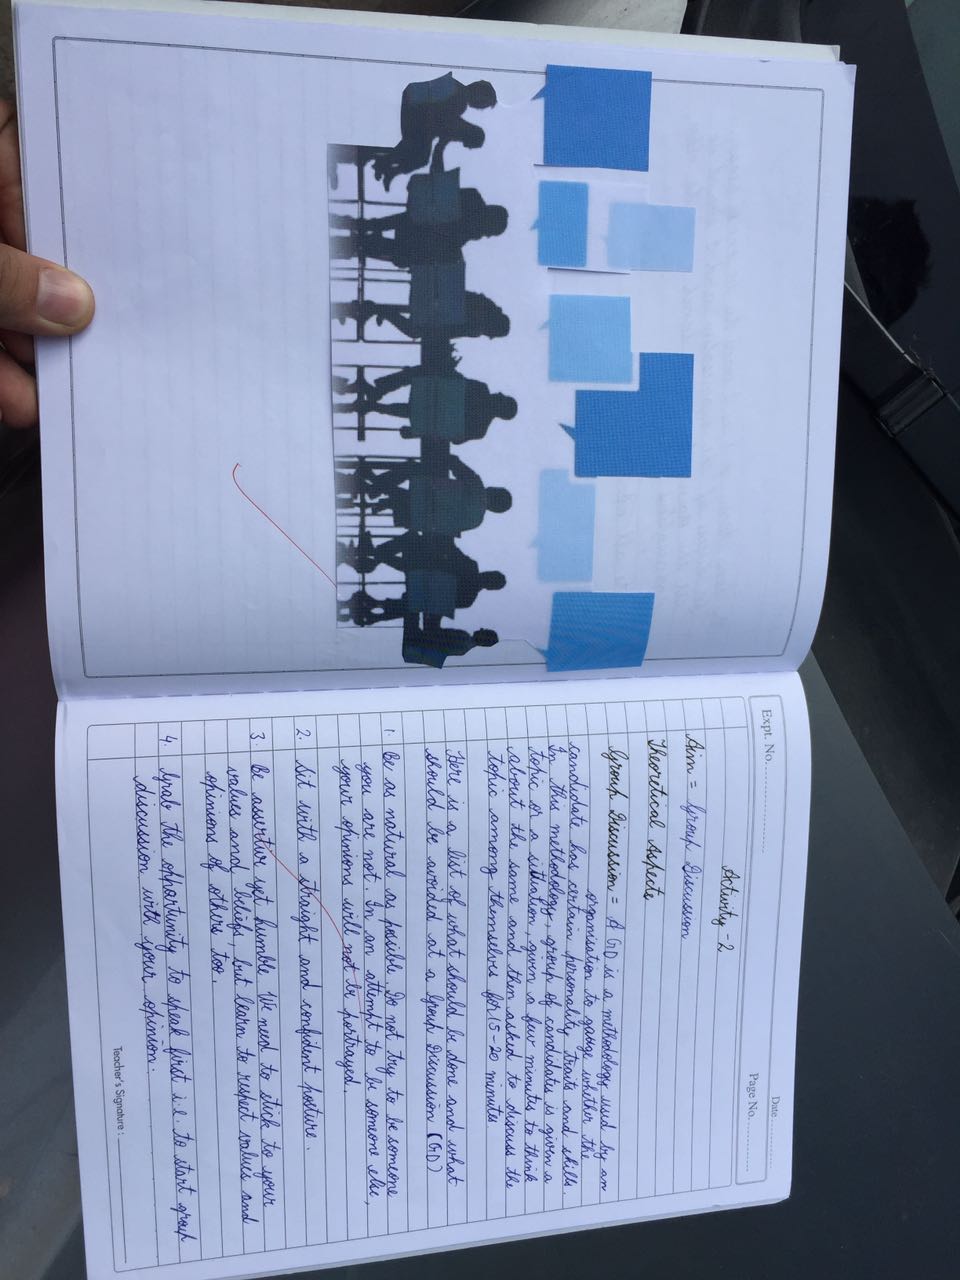 Date
Expt. No.
Page No.
Activity-2
Aim = Group Discussion
Theortical Aspects
Group Discussion = A GD is a methodology used by an
organisation to gauge whether the
candidate has certain personality traits and skills.
In this methodology, group of candidates is given a
topic or a situation, given a few minutes to think
about the same and then asked to discuss the
topic among themselves for 15-20 minutes
Here is a list of what should be done and what
should be avoided at a Group Discussion (GD)
1. Be as natural as posible. Do not try to be someone
you are not. In an attempt to be someone else,
your opinions will not be portrayed.
2. Sit with a straight and confident posture.
3. Be assertive yet humble. We need to stick to your
values and beliefs, but learn to respect values and
opinions of others too.
4. Grab the opportunity to speak first i.e. to start group
discussion with your opinion.
Teacher's Signature :